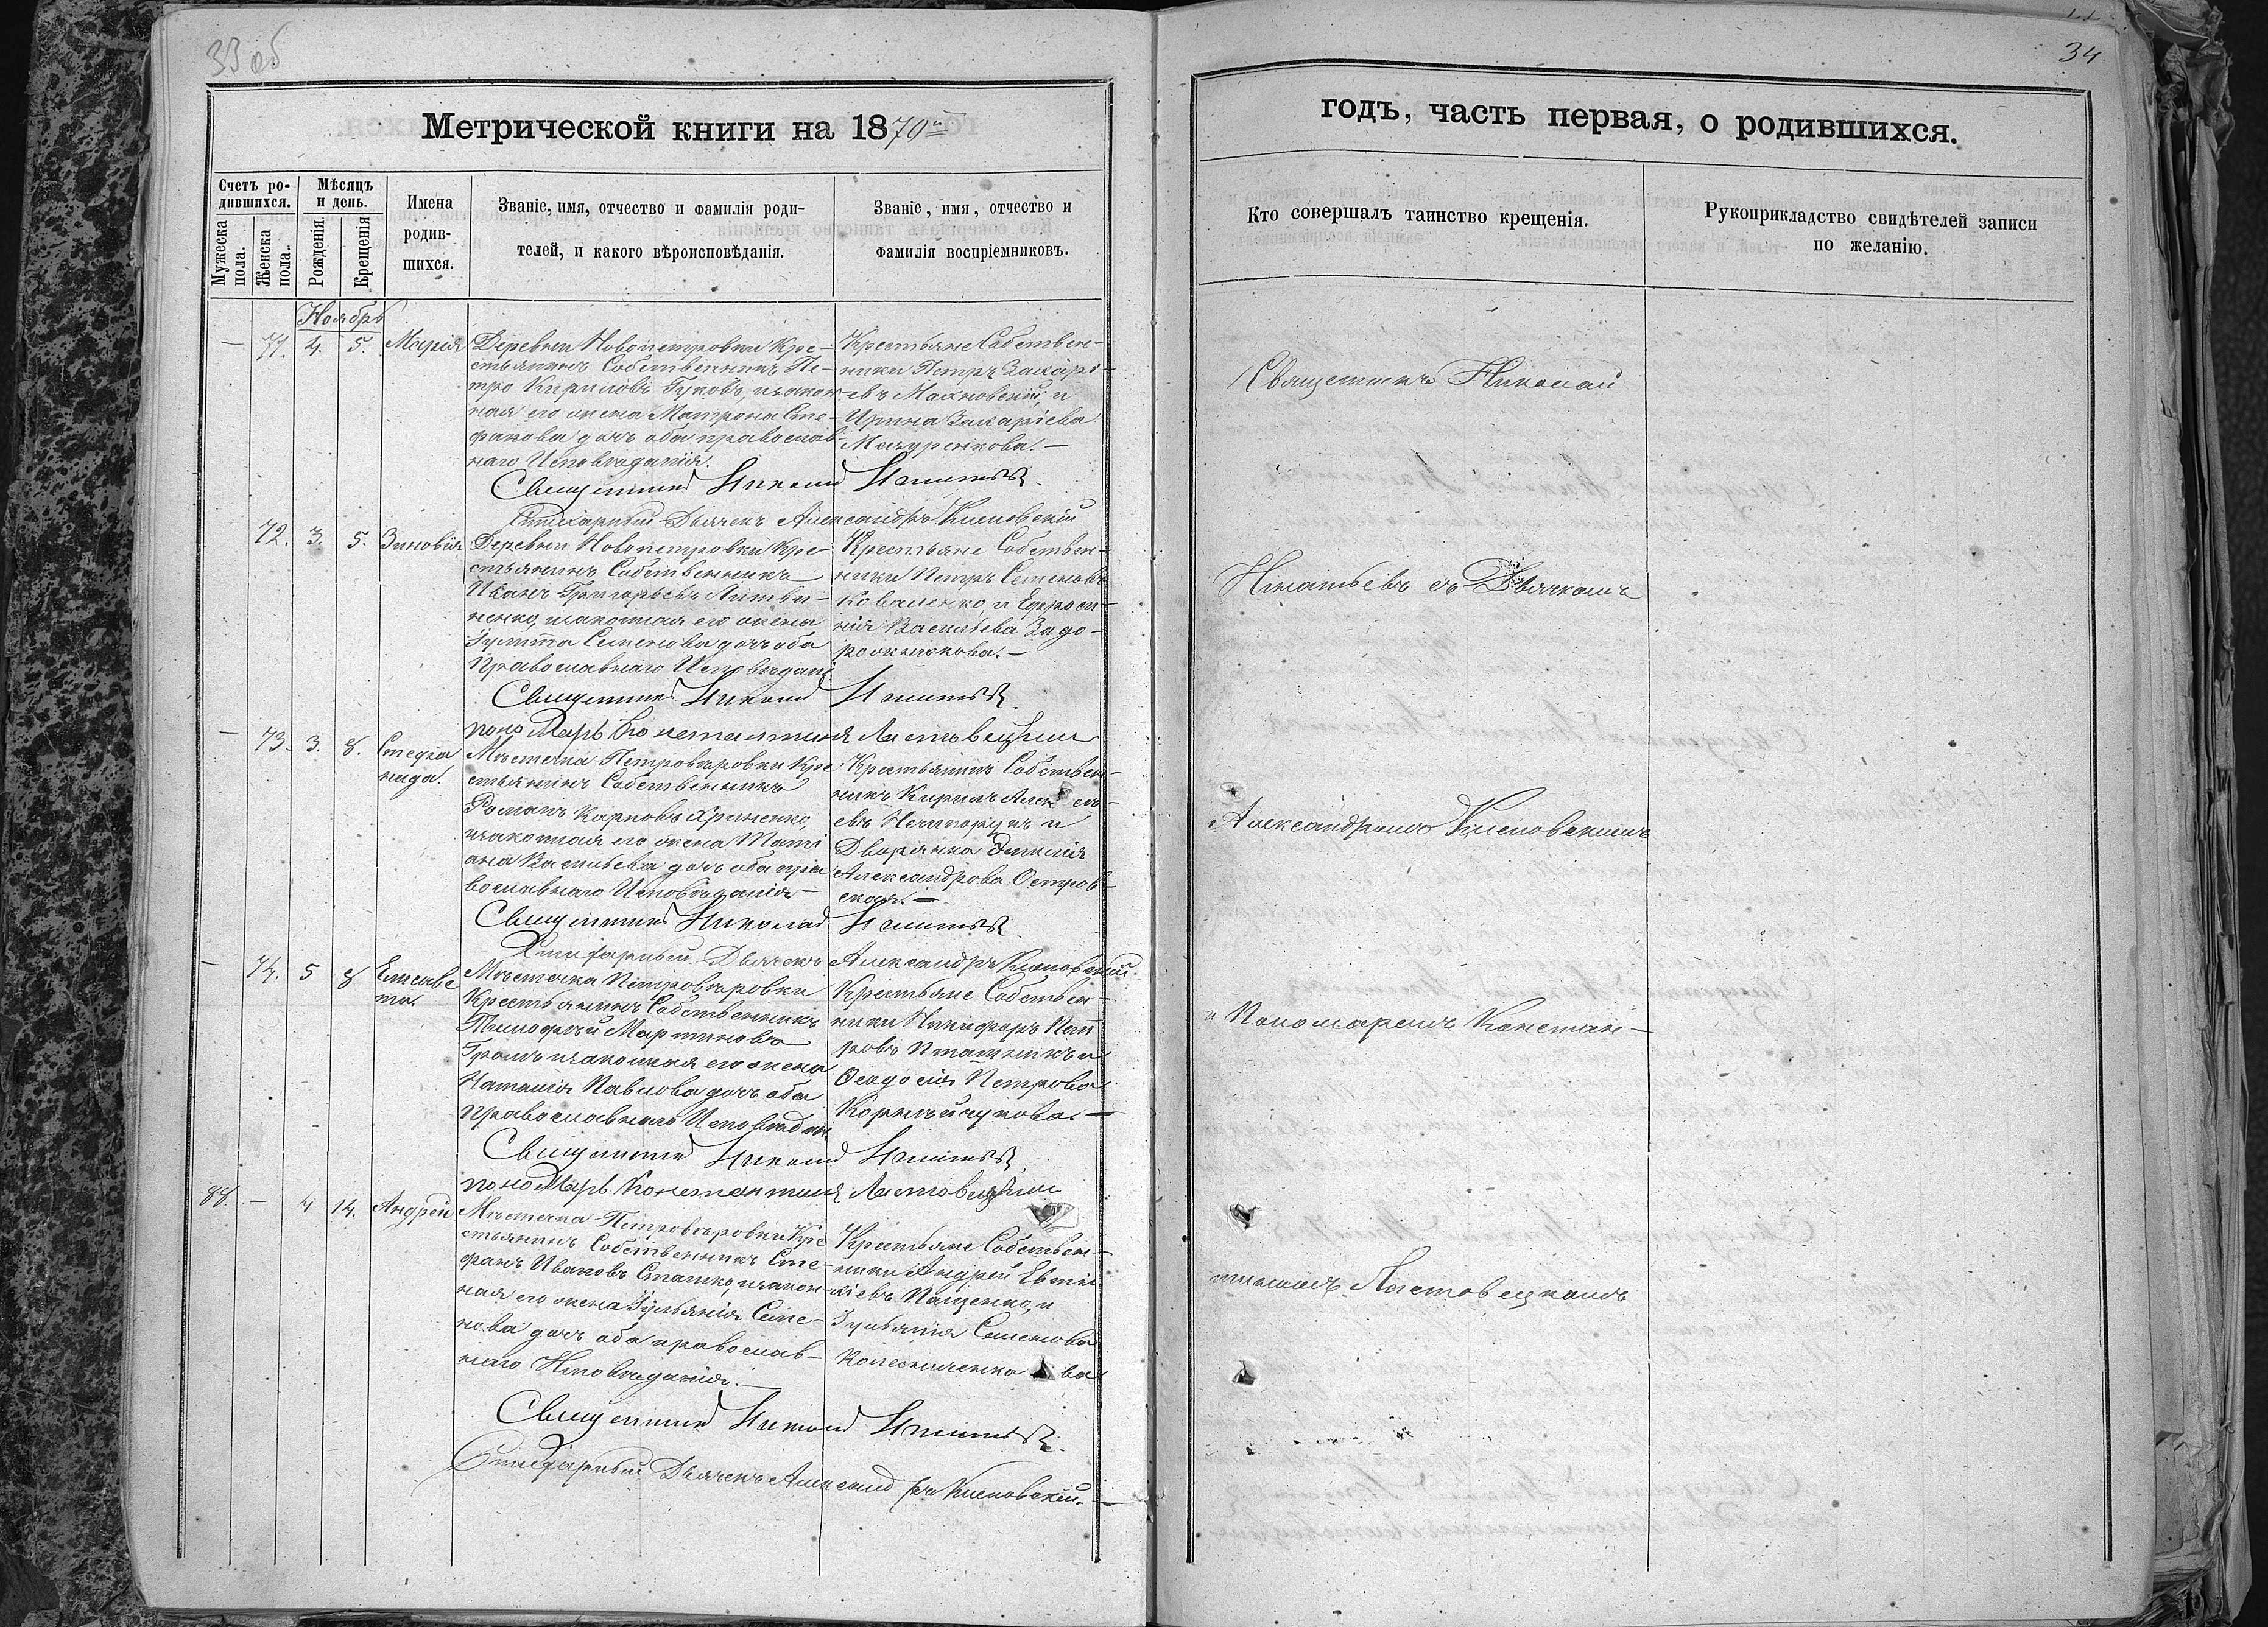 33 об
34
Метрической книги на 1870й
годъ, часть первая, о родившихся.
Счетъ ро-
дившихся.
Мужеска
пола.
Женска
пола.
Мѣсяцъ
и день.
Рожденія.
Крещенія
Имена
родив-
шихся.
Званіе, имя, отчество и фамилія роди-
телей, и какого вѣроисповѣданія.
Званіе, имя, отчество и
фамилія воспріемниковъ.
Кто совершалъ таинство крещенія.
Рукоприкладство свидѣтелей записи
по желанію.
Ноябрь
— 71. 4. 5. Марія
Деревни Новопетровки Кре-
стьянинъ Собственникъ Пе-
тро Кириловъ Гуковъ, и закон
ная его жена Матрона Сте-
фанова дочь оба православ-
наго Исповѣданія.
Крестьяне Собствен-
ники Петръ Захарі-
евъ Махновскій, и
Ирина Захаріева
Мазуренкова. —
Священникъ Николай Игнатьев
Стихарный Дьячекъ Александръ Кисловскій
72. 3. 5. Зиновія
Деревни Новопетровки Кре-
стьянинъ Собственникъ
Иванъ Григорьевъ Литви-
ненко, и законная его жена
Іулитта Семенова дочь оба
Православнаго Исповѣдані
Крестьяне Собствен-
ники Петръ Семеновъ
Коваленко, и Евфроси-
нія Васильева Задо-
рожнюкова. —
Священникъ Николай Игнатьев
пономарь Константинъ Листовецкий
— 73. 3. 8. Стефа
нида.
Мѣстечка Петровѣровки Кре
стьянинъ Собственникъ
Романъ Карповъ Хриненко,
и законная его жена Тати
ана Васильева дочь оба пра
вославнаго Исповѣданія —
Крестьянинъ Собствен-
никъ Кирилъ Алек
евъ Нечипорукъ и
Дворянка Эмилія
Александрова Остров-
ская. —
Священникъ Николай Игнатьев
Стихарный Дьячекъ Александръ Кисловский.
— 74. 5 8 Елисаве
та.
Мѣстечка Петровѣровки
Крестьянинъ Собственникъ
Тимофѣй Мартиновъ
Громъ и законная его жена
Наталія Павлова дочь оба
Православнаго Исповѣдан
Крестьяне Собствен-
ники Никифоръ Пет
ровъ Пташникъ и
Ѳеодосія Петрова
Корнѣйчукова. —
Священникъ Николай Игнатьев
пономарь Константинъ Листовецкий
88. — 4 14. Андрей
Мѣстечка Петровѣровки Кре
стьянинъ Собственникъ Сте-
фанъ Ивановъ Сташко, и закон-
ная его жена Іульянія Семе-
нова дочь оба православ-
наго Исповѣданія. —
Крестьяне Собствен-
ники Андрей Евти
хіевъ Пащенко, и
Іульянія Семенова
Колесниченко ва
Священникъ Николай Игнатьев
Стихарный Дьячекъ Александръ Кисловский. —
Священникъ Николай
Игнатьевъ съ Дьячкомъ
Александромъ Кисловскимъ
и Пономаремъ Констан-
тиномъ Листовецкимъ